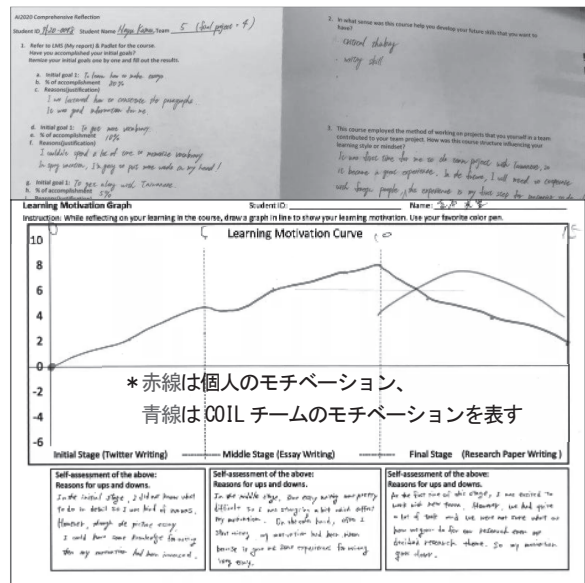 AI2020 Comprehensive Reflection
Student ID Student Name Team 5 (final project = 4)
1. Refer to LMS (My report) & Padlet for the course.
Have you accomplished your initial goals?
Itemize your initial goals one by one and fill out the results.
a. Initial goal 1: To learn how to make essay
b. % of accomplishment 80%
c. Reasons(justification)
I have learned how to construct the paragraphs.
It was good information for me.
d. Initial goal 1: To get more vocabulary
e. % of accomplishment 10%
f. Reasons(justification)
I couldn't spend a lot of time to memorize vocabulary.
In spring vacation, I'm going to put more words in my head!
g. Initial goal 1: To get along with Taiwanese.
h. % of accomplishment 5%
2. In what sense was this course help you develop your future skills that you want to
have?
· critical thinking
· writing skill
3. This course employed the method of working on projects that you yourself in a team
contributed to your team project. How was this course structure influencing your
learning style or mindset?
It was first time for me to do some project with Taiwanese, so
it became a good experience. In the future, I will need to cooperate
with foreign people, this experience is my first step for
Learning Motivation Graph Student ID: Name:
Instruction: While reflecting on your learning in the course, draw a graph in line to show your learning motivation. Use your favorite color pen.
Learning Motivation Curve
10
8
6
4
2
0
-2
-4
-6
*赤線は個人のモチベーション、
青線は COIL チームのモチベーションを表す
Initial Stage (Twitter Writing) Middle Stage (Essay Writing) Final Stage (Research Paper Writing )
Self-assessment of the above:
Reasons for ups and downs.
In the initial stage, I did not know what
to do in detail so I was kind of nervous.
However,
I could have some knowledge for writing
then my motivation had been increased.
Self-assessment of the above:
Reasons for ups and downs.
In the middle stage, our essay writing was pretty
difficult so I was struggling a bit which affect
my motivation. On the other hand, after I
start writing my motivation had been risen
because it gave me some experiences for writing
long essay.
Self-assessment of the above:
Reasons for ups and downs.
At the first time of this stage, I was excited to
work with new team. However, we had quite
a lot of task and we were not sure what or
how we gonna do for our research even we
decided research theme. So my motivation
goes down.